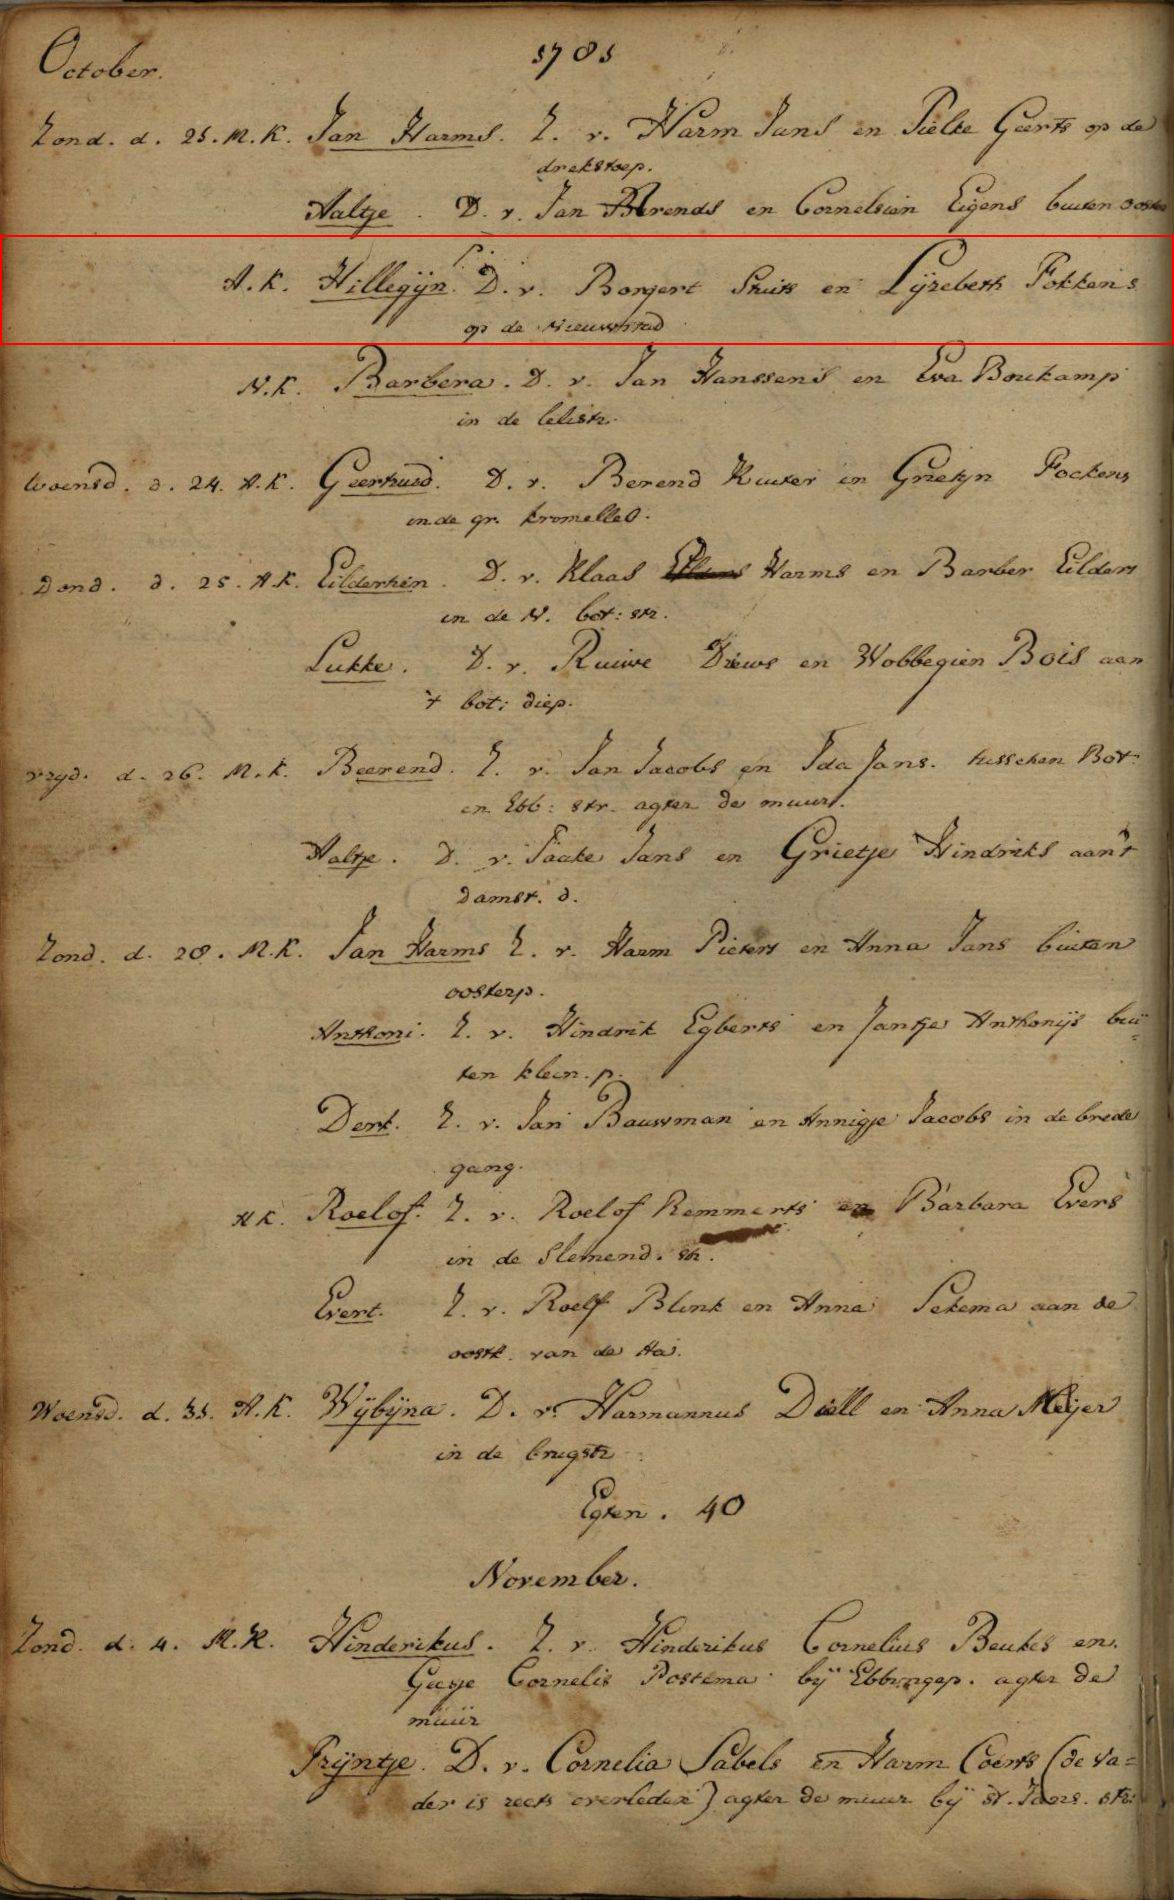 October. 1781
Zond. d. 21. M. K. Jan Harms. Z. v. Harm Jans en Pielke Geerts op de
drekstoep.
Aaltje. D. v. Jan Berends en Cornelsien Eigens buiten ooster
A. K. Hillegijn. D. v. Borgert Sluis en Lijzebeth Fokkens
op de nieuwstad
N. K. Barbera. D. v. Jan Hanssens en Eva Boukamp
in de lelistr.
Woensd. d. 24. A. K. Geertruid. D. v. Berend Kuiter en Grietijn Fockens
in de gr. kromelleb.
Dond. d. 25. A. K. Eilderhin. D. v. Klaas Harms en Barber Eilders
in de N. bot: str.
Lukke. D. v. Ruiwe Driews en Wobbegien Bois aan
't bot: diep.
vryd. d. 26. M. K. Beerend. Z. v. Jan Jacobs en Ida Jans. tusschen Bot:
en Ebb: str. agter de muur.
Aaltje. D. v. Taake Jans en Grietje Hindriks aan't
damst. d.
Zond. d. 28. M. K. Jan Harms Z. v. Harm Pieters en Anna Jans buiten
oosterp.
Anthoni. Z. v. Hindrik Egberts en Jantje Anthonijs bui=
ten klein. p.
Derk. Z. v. Jan Bauwman en Annigje Jacobs in de brede
gang.
A K. Roelof. Z. v. Roelof Remmerts en Barbara Evers
in de Slemend. str.
Evert. Z. v. Roelf Blink en Anna Sekema aan de
oostk. van de Aa.
Woensd. d. 31. A. K. Wijbijna. D. v. Harmannus Diell en Anna Meijer
in de brugstr.
Egten. 40
November.
Zond. d. 4. M. K. Hinderikus. Z. v. Hinderikus Cornelius Beukes en
Geesje Cornelis Postema bij Ebbingep. agter de
muur
Trijntje. D. v. Cornelia Sabels en Harm Coerts (de va=
der is reets overleden) agter de muur bij st. Jans. str: